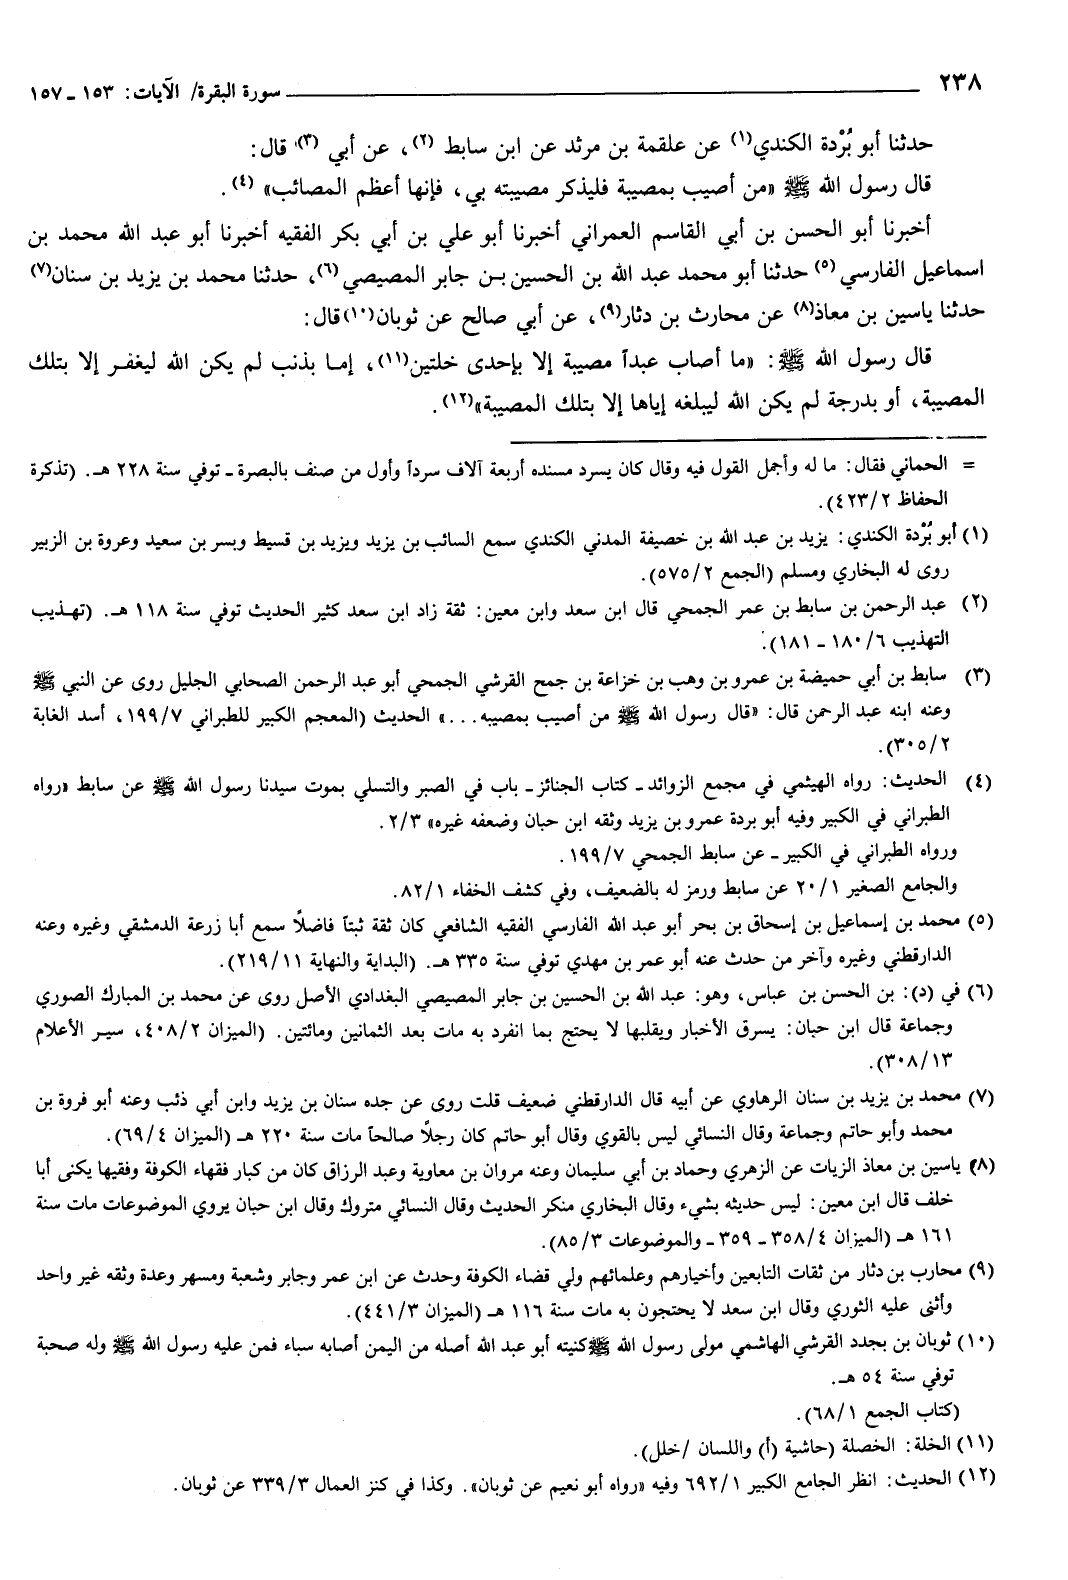 ٢٣٨ سورة البقرة/ الآيات: ١٥٣ ـ ١٥٧
حدثنا أبو بُرْدة الكندي(١) عن علقمة بن مرثد عن ابن سابط (٢)، عن أبي (٣) قال:
قال رسول الله ﷺ «من أصيب بمصيبة فليذكر مصيبته بي، فإنها أعظم المصائب» (٤).
أخبرنا أبو الحسن بن أبي القاسم العمراني أخبرنا أبو علي بن أبي بكر الفقيه أخبرنا أبو عبد الله محمد بن
اسماعيل الفارسي(٥) حدثنا أبو محمد عبد الله بن الحسين بن جابر المصيصي(٦)، حدثنا محمد بن يزيد بن سنان(٧)
حدثنا ياسين بن معاذ(٨) عن محارث بن دثار(٩)، عن أبي صالح عن ثوبان(١٠) قال:
قال رسول الله ﷺ: «ما أصاب عبداً مصيبة إلا بإحدى خلتين(١١)، إما بذنب لم يكن الله ليغفر إلا بتلك
المصيبة، أو بدرجة لم يكن الله ليبلغه إياها إلا بتلك المصيبة»(١٢).
= الحماني فقال: ما له وأجمل القول فيه وقال كان يسرد مسنده أربعة آلاف سرداً وأول من صنف بالبصرة ـ توفي سنة ٢٢٨ هـ. (تذكرة
الحفاظ ٤٢٣/٢).
(١) أبو بُرْدة الكندي: يزيد بن عبد الله بن خصيفة المدني الكندي سمع السائب بن يزيد ويزيد بن قسيط وبسر بن سعيد وعروة بن الزبير
روى له البخاري ومسلم (الجمع ٥٧٥/٢).
(٢) عبد الرحمن بن سابط بن عمر الجمحي قال ابن سعد وابن معين: ثقة زاد ابن سعد كثير الحديث توفي سنة ١١٨ هـ. (تهذيب
التهذيب ١٨٠/٦ ـ ١٨١).
(٣) سابط بن أبي حميضة بن عمرو بن وهب بن خزاعة بن جمح القرشي الجمحي أبو عبد الرحمن الصحابي الجليل روى عن النبي ﷺ
وعنه ابنه عبد الرحمن قال: «قال رسول الله ﷺ من أصيب بمصيبه...» الحديث (المعجم الكبير للطبراني ١٩٩/٧، أسد الغابة
٣٠٥/٢).
(٤) الحديث: رواه الهيثمي في مجمع الزوائد ـ كتاب الجنائز ـ باب في الصبر والتسلي بموت سيدنا رسول الله ﷺ عن سابط «رواه
الطبراني في الكبير وفيه أبو بردة عمرو بن يزيد وثقه ابن حبان وضعفه غيره» ٢/٣.
ورواه الطبراني في الكبير ـ عن سابط الجمحي ١٩٩/٧.
والجامع الصغير ٢٠/١ عن سابط ورمز له بالضعيف، وفي كشف الخفاء ٨٢/١.
(٥) محمد بن إسماعيل بن إسحاق بن بحر أبو عبد الله الفارسي الفقيه الشافعي كان ثقة ثبتاً فاضلاً سمع أبا زرعة الدمشقي وغيره وعنه
الدارقطني وغيره وآخر من حدث عنه أبو عمر بن مهدي توفي سنة ٣٣٥ هـ. (البداية والنهاية ٢١٩/١١).
(٦) في (د): بن الحسن بن عباس، وهو: عبد الله بن الحسين بن جابر المصيصي البغدادي الأصل روى عن محمد بن المبارك الصوري
وجماعة قال ابن حبان: يسرق الأخبار ويقلبها لا يحتج بما انفرد به مات بعد الثمانين ومائتين. (الميزان ٤٠٨/٢، سير الأعلام
٣٠٨/١٣).
(٧) محمد بن يزيد بن سنان الرهاوي عن أبيه قال الدارقطني ضعيف قلت روى عن جده سنان بن يزيد وابن أبي ذئب وعنه أبو فروة بن
محمد وأبو حاتم وجماعة وقال النسائي ليس بالقوي وقال أبو حاتم كان رجلاً صالحاً مات سنة ٢٢٠ هـ (الميزان ٦٩/٤).
(٨) ياسين بن معاذ الزيات عن الزهري وحماد بن أبي سليمان وعنه مروان بن معاوية وعبد الرزاق كان من كبار فقهاء الكوفة وفقيها يكنى أبا
خلف قال ابن معين: ليس حديثه بشيء وقال البخاري منكر الحديث وقال النسائي متروك وقال ابن حبان يروي الموضوعات مات سنة
١٦١ هـ (الميزان ٣٥٨/٤ ـ ٣٥٩ ـ والموضوعات ٨٥/٣).
(٩) محارب بن دثار من ثقات التابعين وأخيارهم وعلمائهم ولي قضاء الكوفة وحدث عن ابن عمر وجابر وشعبة ومسهر وعدة وثقه غير واحد
وأثنى عليه الثوري وقال ابن سعد لا يحتجون به مات سنة ١١٦ هـ (الميزان ٤٤١/٣).
(١٠) ثوبان بن بجدد القرشي الهاشمي مولى رسول الله ﷺ كنيته أبو عبد الله أصله من اليمن أصابه سباء فمن عليه رسول الله ﷺ وله صحبة
توفي سنة ٥٤ هـ.
(كتاب الجمع ٦٨/١).
(١١) الخلة: الخصلة (حاشية (أ) واللسان /خلل).
(١٢) الحديث: انظر الجامع الكبير ٦٩٢/١ وفيه «رواه أبو نعيم عن ثوبان». وكذا في كنز العمال ٣٣٩/٣ عن ثوبان.